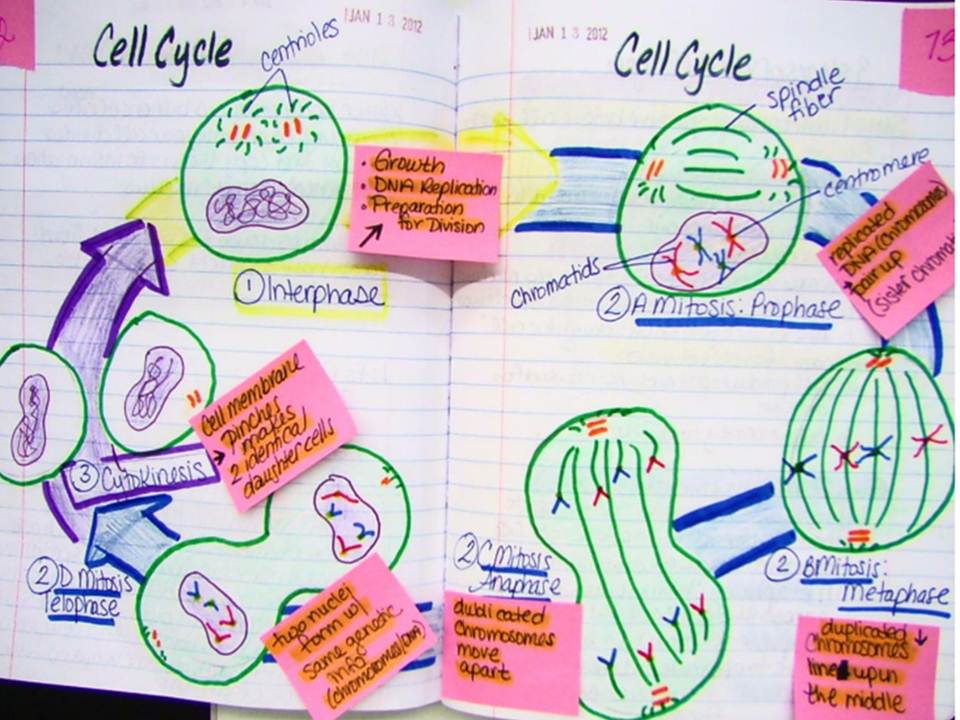 2
JAN 13 2012
Cell Cycle
centrioles
• Growth
• DNA Replication
• Preparation
for Division
① Interphase
JAN 13 2012
Cell Cycle
spindle
fiber
centromere
chromatids
② A Mitosis: Prophase
replicated
DNA (chromosomes)
pair up
(sister chromat
② B Mitosis:
Metaphase
duplicated
chromosomes
line up in
the middle
② C Mitosis
Anaphase
dublicated
chromosomes
move
apart
② D Mitosis
Telophase
two nuclei
form w/
same genetic
info
(chromosomes/DNA)
③ Cytokinesis
Cell membrane
pinches
makes
2 identical
daughter cells